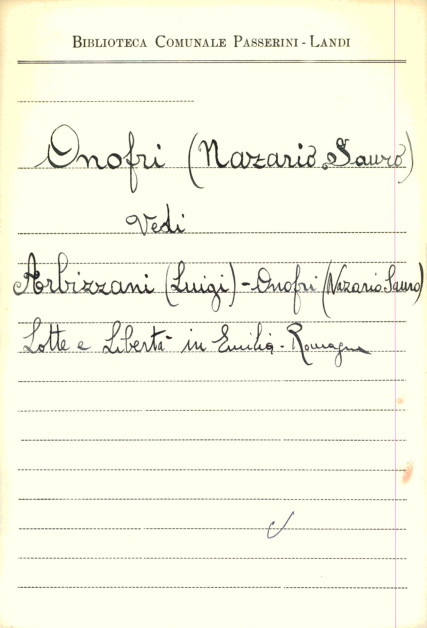 BIBLIOTECA COMUNALE PASSERINI - LANDI
Onofri (Nazario Sauro)
Vedi
Arbizzani (Luigi) - Onofri (Nazario Sauro)
Lotte e Libertà in Emilia - Romagna